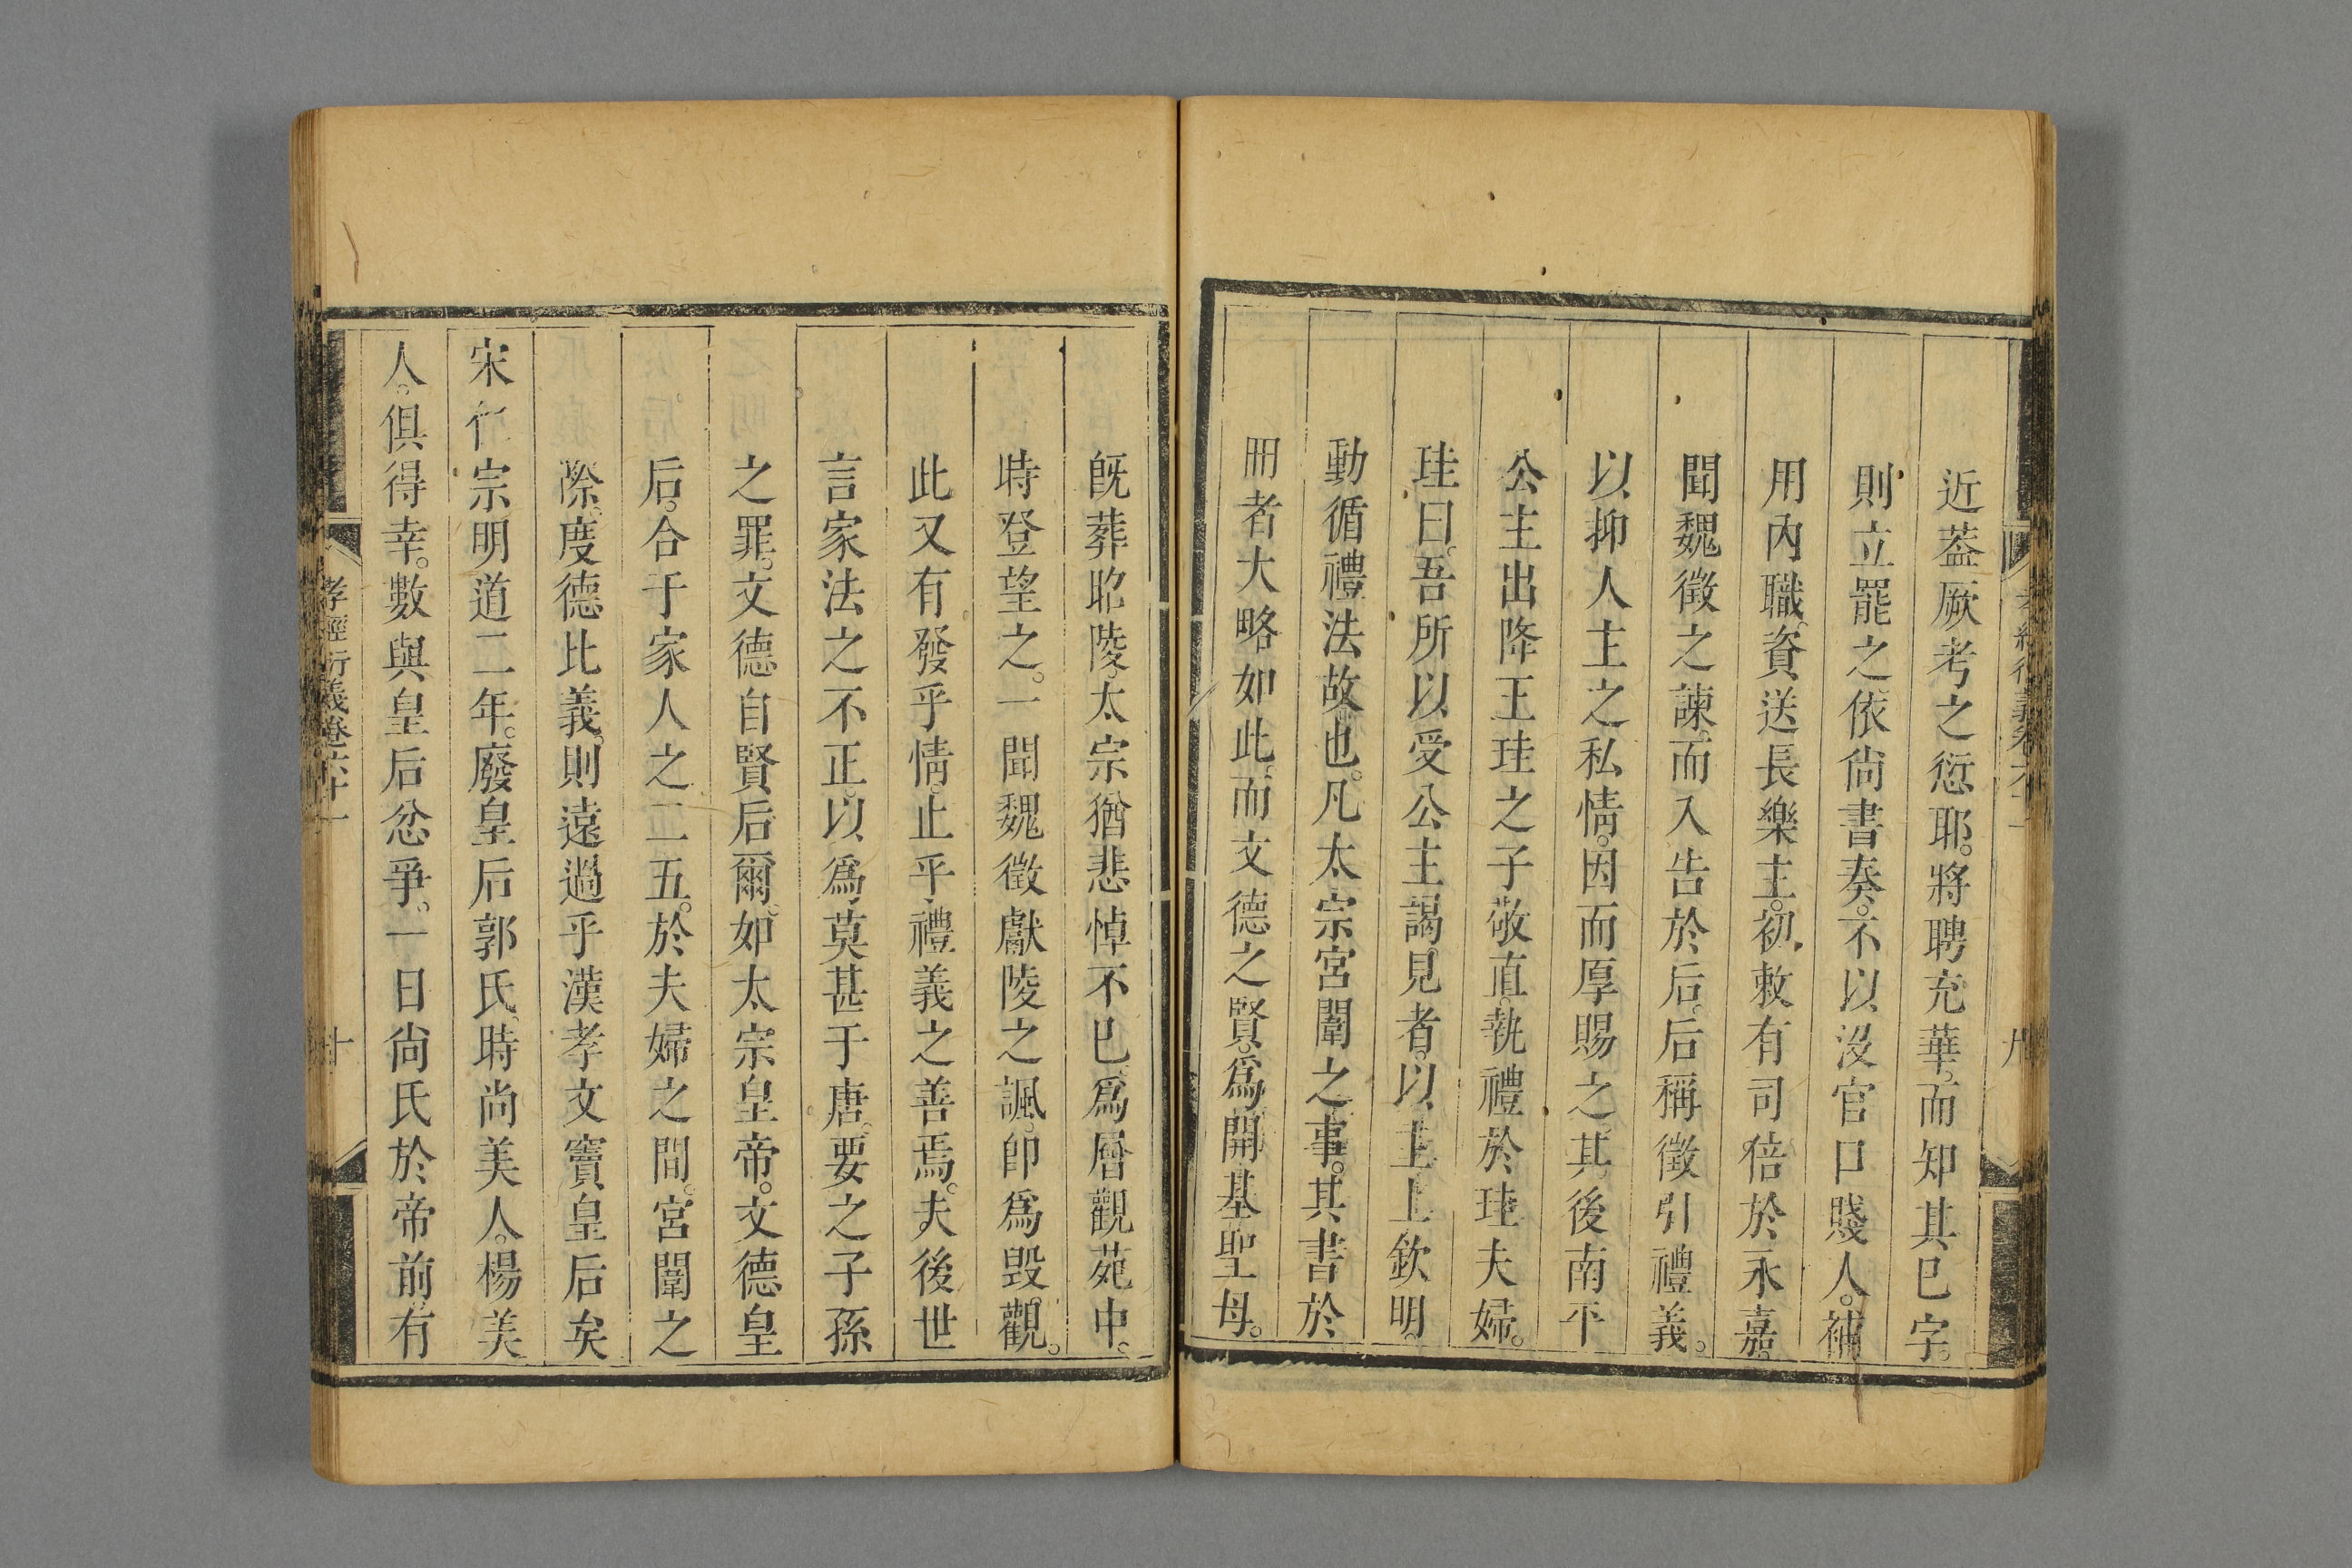 近葢厥考之愆耶。將聘充華。而知其巳字。
則立罷之。依尙書奏。不以沒官口賤人。補
用內職。資送長樂主。初。敕有司倍於永嘉。
聞魏徵之諫。而入告於后。后稱徵引禮義。
以抑人主之私情。因而厚賜之。其後南平
公主出降王珪之子敬直。執禮於珪夫婦。
珪曰。吾所以受公主謁見者。以主上欽明。
動循禮法故也。凡太宗宮闈之事。其書於
冊者大略如此。而文德之賢。爲開基聖母。
既葬昭陵。太宗猶悲悼不巳。爲層觀苑中。
時登望之。一聞魏徵獻陵之諷。卽爲毀觀。
此又有發乎情。止乎禮義之善焉。夫後世
言家法之不正。以爲莫甚于唐。要之子孫
之罪。文德自賢后爾。如太宗皇帝。文德皇
后。合于家人之二五。於夫婦之間。宮闈之
際。度德比義。則遠過乎漢孝文竇皇后矣
宋仁宗明道二年。廢皇后郭氏。時尚美人。楊美
人。俱得幸。數與皇后忿爭。一日尙氏於帝前有
孝經衍義卷六十一
十